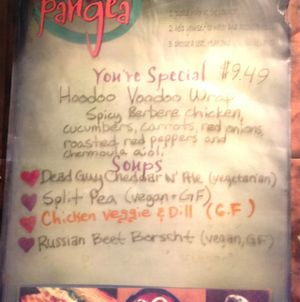 pangea
You're Special $9.49
Hoodoo Voodoo Wrap
Spicy Berbere chicken,
cucumbers, carrots, red onions,
roasted red peppers and
chermoula aioli
Soups
Dead Guy Cheddar N' Ale (vegetarian)
Split Pea (vegan+GF)
Chicken Veggie & Dill (G.F)
Russian Beet Borscht (vegan, GF)